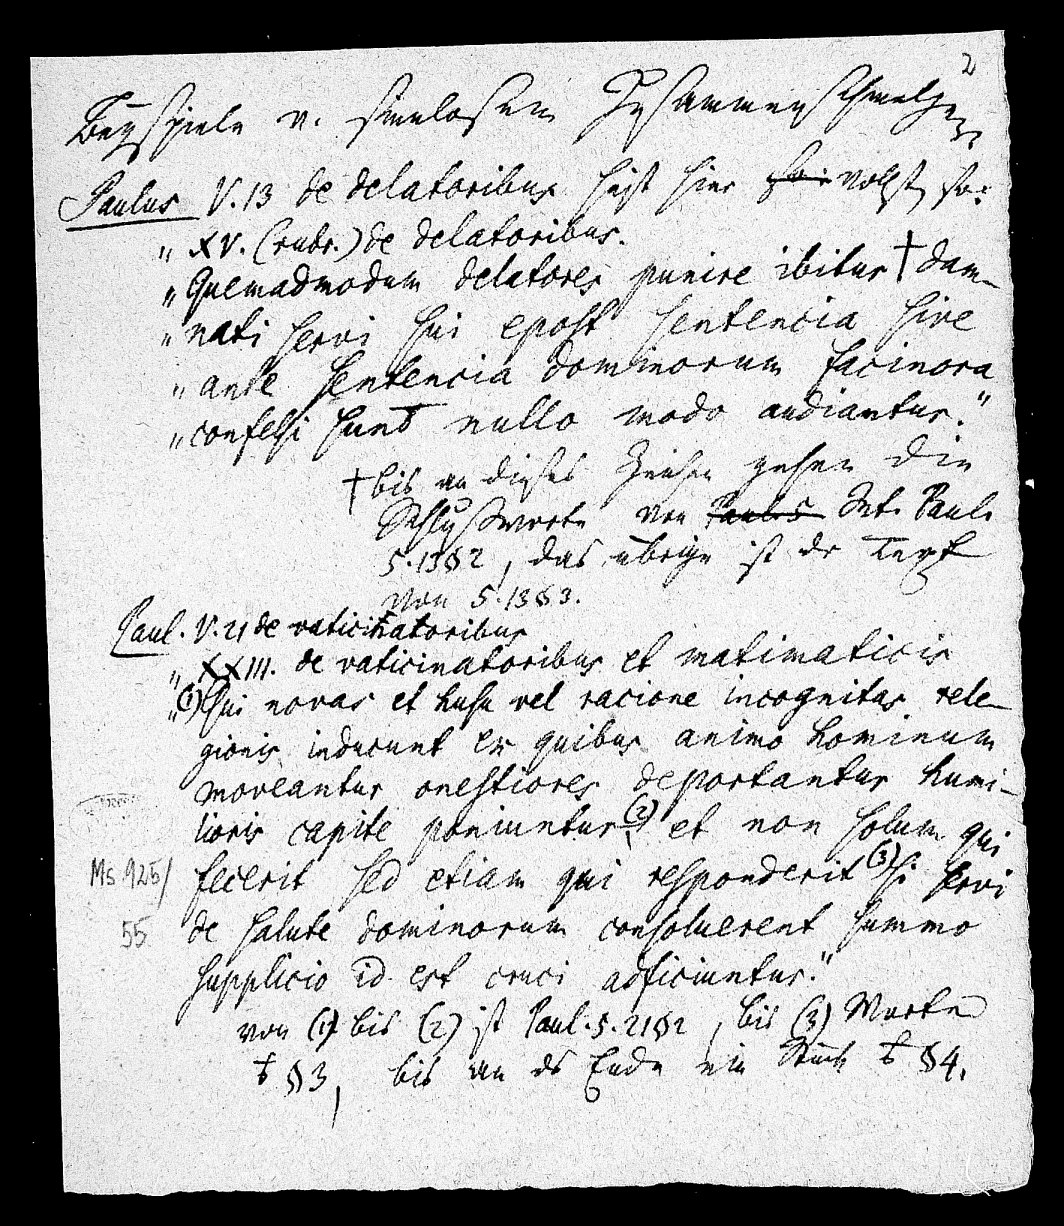 2
Beyspiele v. sinnlosem Zusammenschmelzen
Paulus V. 13 de delatoribus heißt hier vollst. so:
„ XV. (rubr.) de delatoribus.
„ Quemadmodum delatores punire ibitur † dam-
„ nati servi sui epost sentencia sive
„ ante sentencia dominorum facinora
„ confessi sunt nullo modo audiantur."
† bis an dieses Zeichen gehen die
Schlußworte von Paul. 5 Int. Paul.
5.13§2, das übrige ist der Text
von 5.13§3.
Paul. V. 21 de vaticinatoribus
„ XXIII. de vaticinatoribus et matimaticis
„ (1) Qui novas et husu vel racione incognitas rele-
gionis inducunt ex quibus animo hominum
moveantur onestiores deportantur humi-
lioris capite poniuntur (2) et non solum qui
fecerit sed etiam qui responderit (3) si servi
de salute dominorum consoluerent summo
supplicio id est cruci adficiuntur."
von (1) bis (2) ist Paul. 5. 21§2, bis (3) Worte
§3, bis an das Ende ein Stück §4.
Ms 925/
55